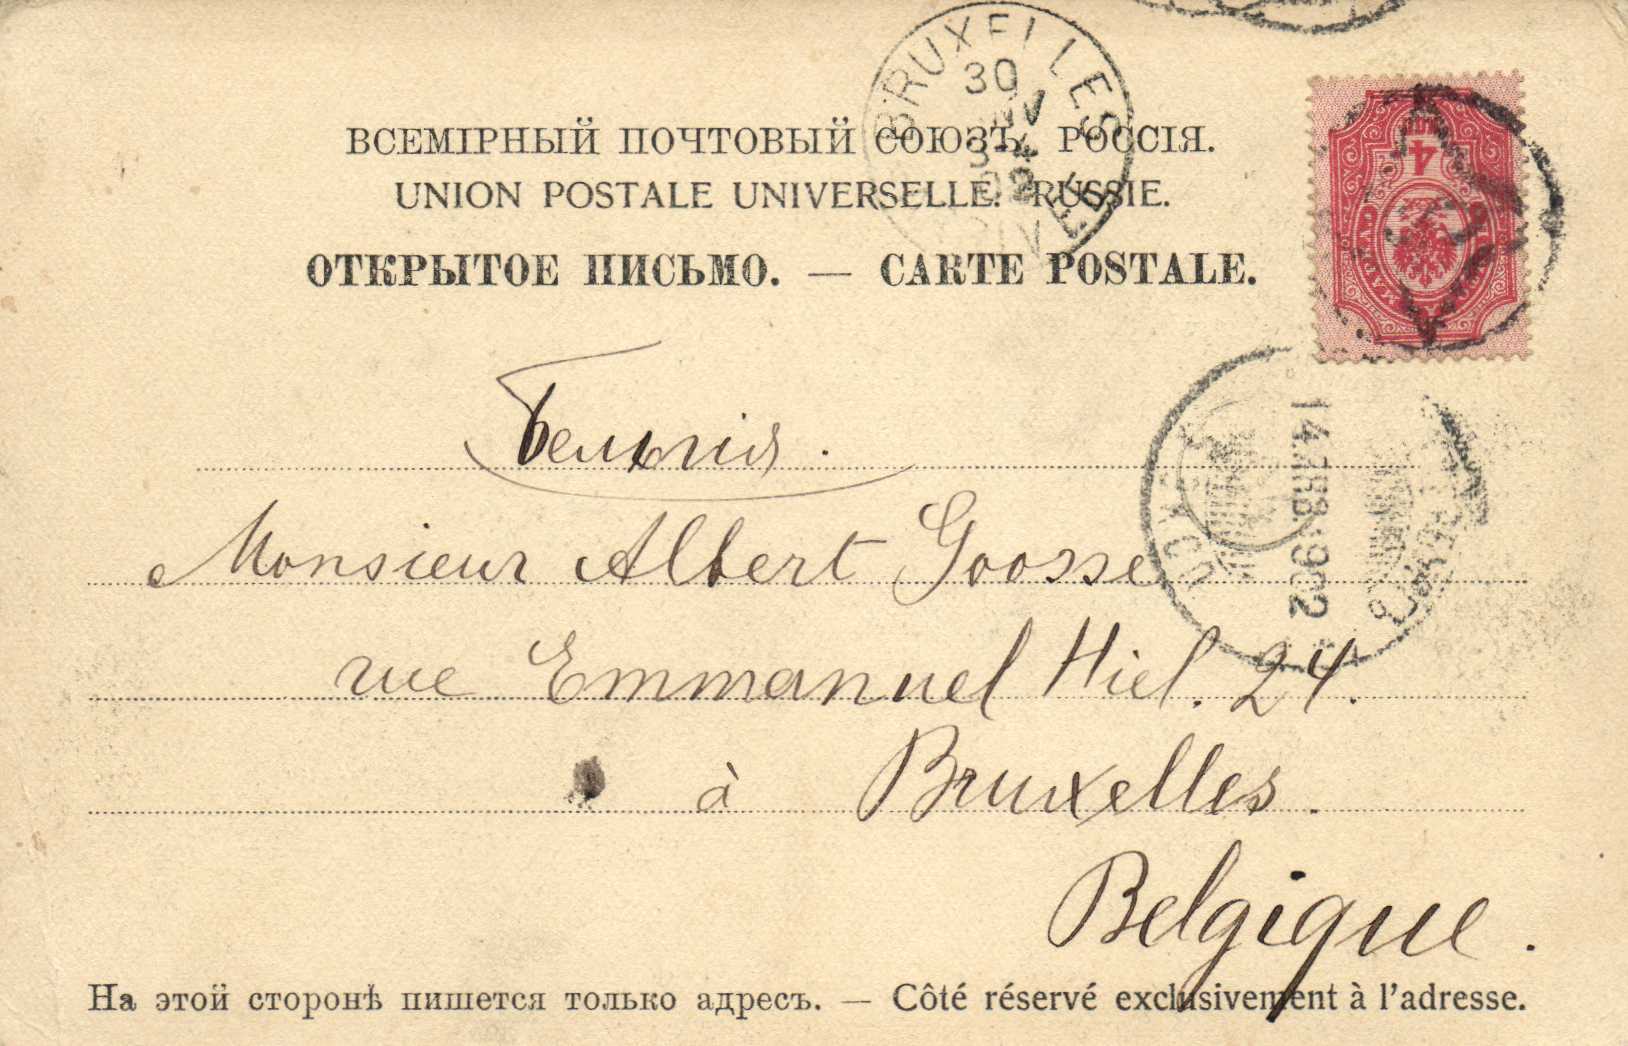 BRUXELLES
30
ВСЕМІРНЫЙ ПОЧТОВЫЙ СОЮЗЪ. РОССІЯ.
UNION POSTALE UNIVERSELLE. RUSSIE.
ОТКРЫТОЕ ПИСЬМО. — CARTE POSTALE.
4
Бельгія.
Monsieur Albert Goosse
rue Emmanuel Hiel. 24.
à Bruxelles.
Belgique.
На этой сторонѣ пишется только адресъ. — Côté réservé exclusivement à l'adresse.